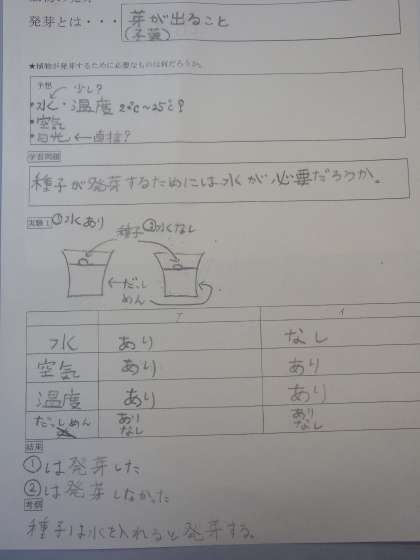 発芽とは・・・芽が出ること
(子葉)
★植物が発芽するために必要なものは何だろうか。
予想
少し?
・水・温度 2℃~25℃?
・空気
・日光←直接?
学習問題
種子が発芽するためには水が必要だろうか。
実験1 ①水あり 種子 ②水なし
←だっし
めん
ア イ
水 あり なし
空気 あり あり
温度 あり あり
だっしめん あり あり
なし なし
結果
①は発芽した
②は発芽しなかった
考察
種子は水を入れると発芽する。